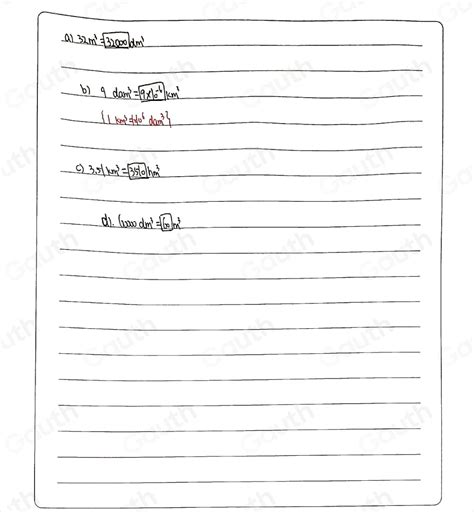 a) 32m³ = 32000 dm³
b) 9 dam³ = 9x10⁻⁶ km³
{1 km³ = 10⁶ dam³}
c) 3.51 km³ = 3510 hm³
d). dm³ = 60 m³